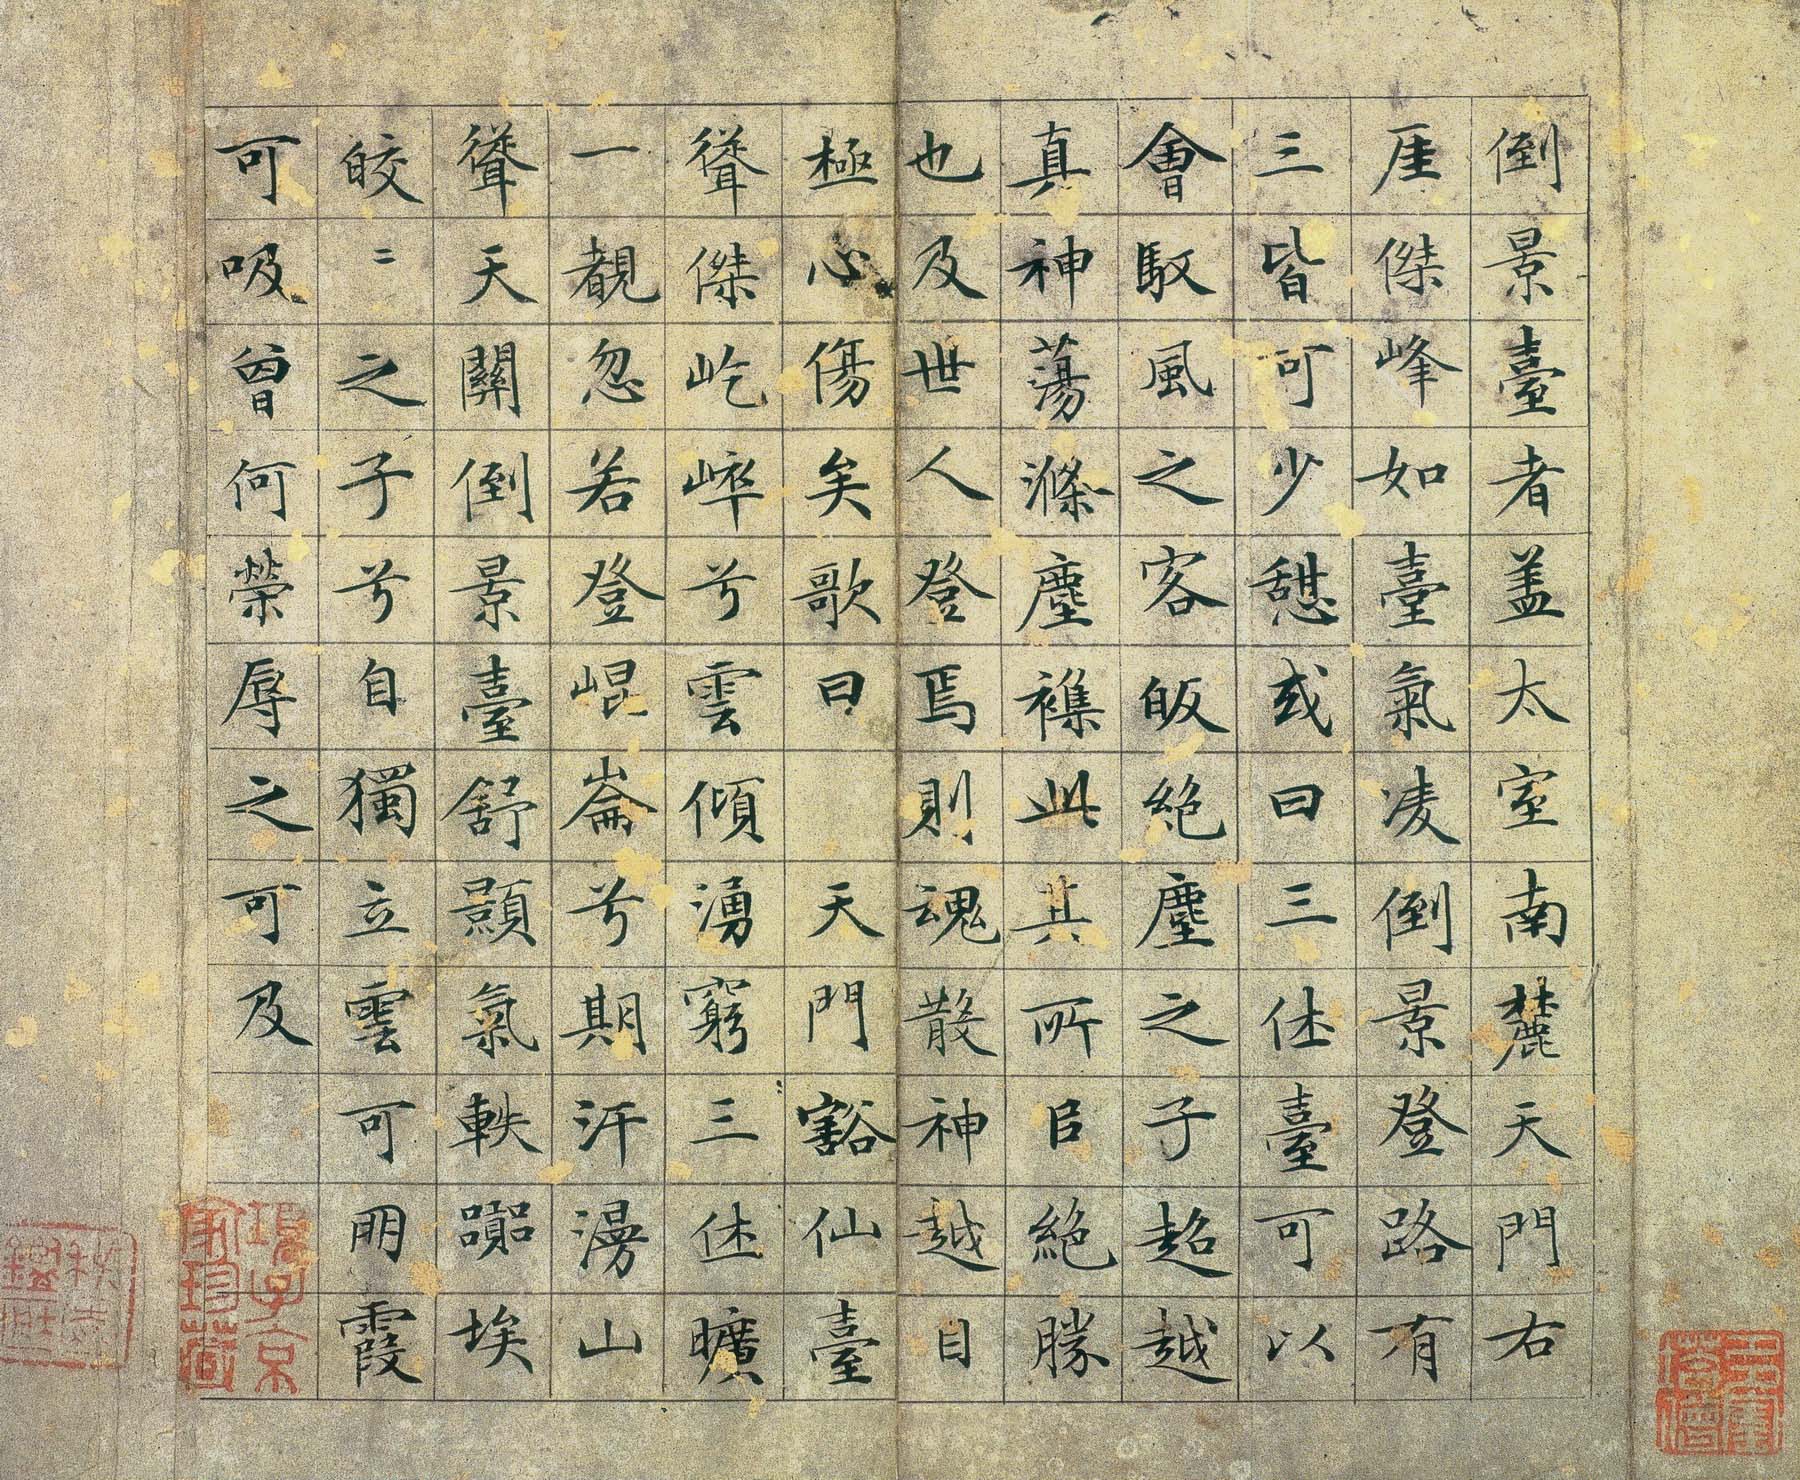 倒景臺者盖太室南麓天門右
厓傑峰如臺氣凌倒景登路有
三皆可少憩或曰三休臺可以
會馭風之客皈絶塵之子超越
真神蕩滌塵襍此其所㠯絶勝
也及世人登焉則魂散神越目
極心傷矣歌曰 天門豁仙臺
聳傑屹崪兮雲傾湧窮三休曠
一覩忽若登崐崙兮期汗漫山
聳天關倒景臺舒顥氣軼嚻埃
皎〻之子兮自獨立雲可朋霞
可吸曾何榮辱之可及
項子京家珍藏